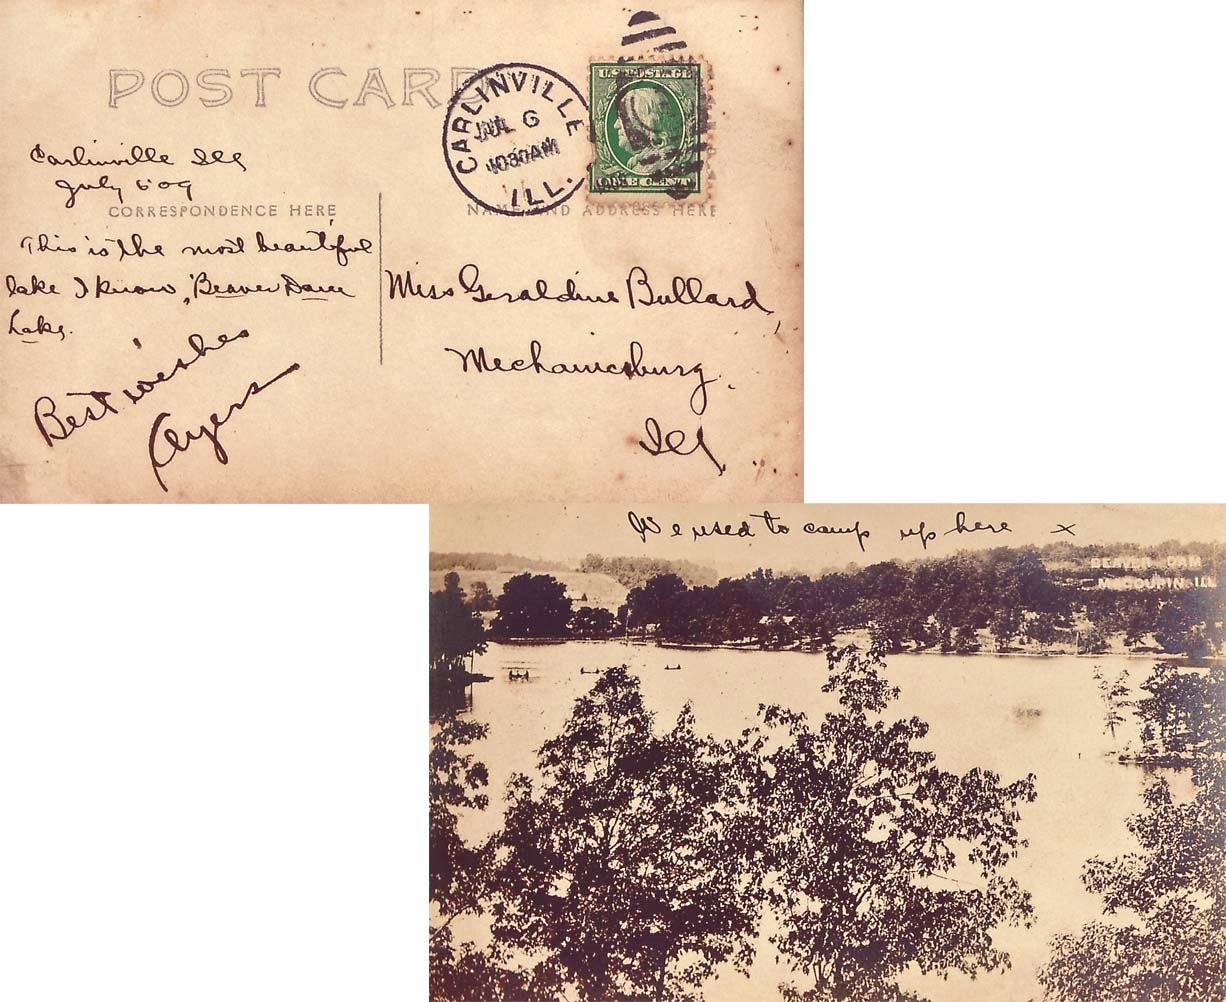 POST CARD
CARLINVILLE
JUL 6
1030AM
ILL.
U.S. POSTAGE
ONE CENT
Carlinville Ill
July 6 09
CORRESPONDENCE HERE
NAME AND ADDRESS HERE
This is the most beautiful
lake I know, Beaver Dam
Lake.
Best wishes
Ayers
Miss Geraldine Bullard,
Mechanicsburg.
Ill,
We used to camp up here x
BEAVER DAM
MACOUPIN ILL